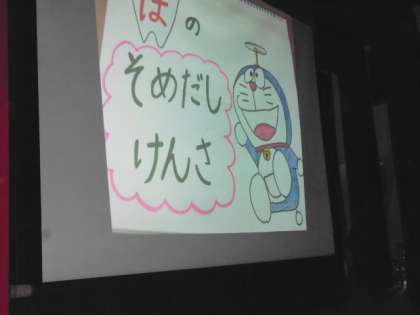 はの
そめだし
けんさ